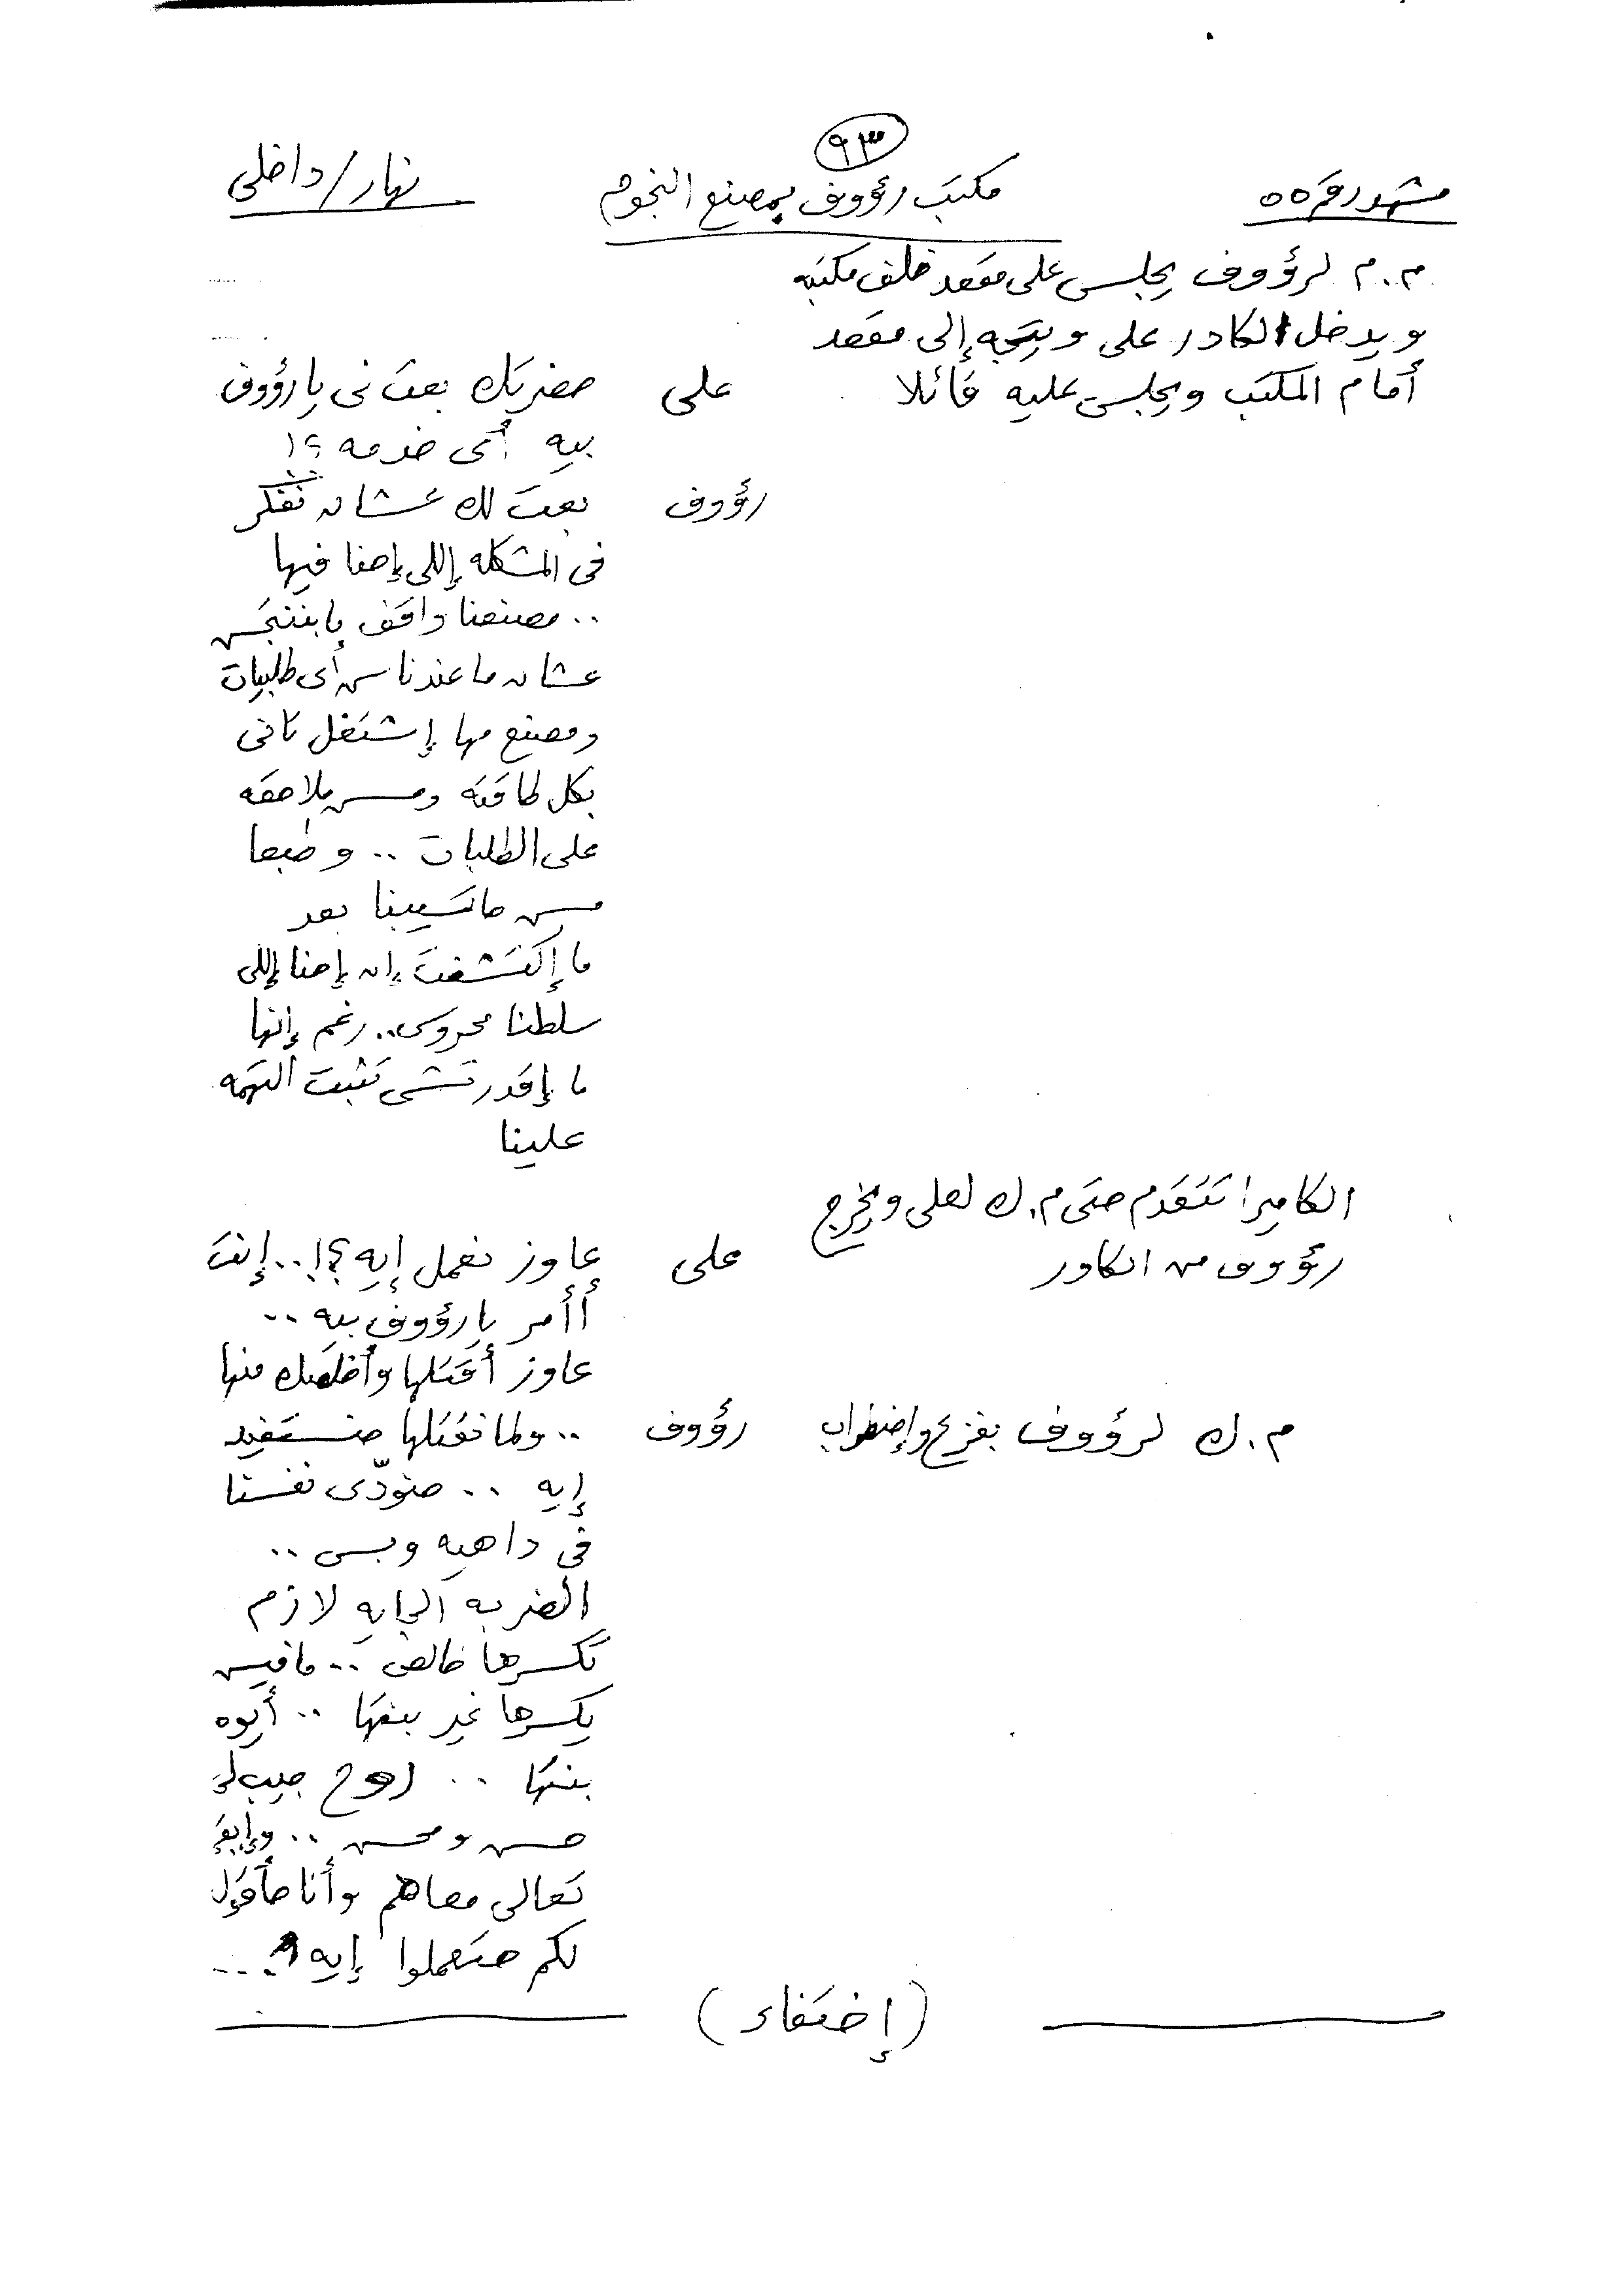 ٩٣
مشهد رقم ٥٥ مكتب رؤوف بمصنع النجوم نهار/داخلى
م.م لرؤوف يجلس على مقعد خلف مكتبه
ويدخل الكادر على ويتجه إلى مقعد
أمام المكتب ويجلس عليه قائلا على حضرتك بعت لى يا رؤوف
بيه أى خدمه ؟!
رؤوف بعت لك عشان نفكر
فى المشكله إللى إحنا فيها
.. مصنعنا واقف ما بننتجش
عشان ما عندناش أى طلبيات
ومصنع مها إشتغل تانى
بكل طاقته ومش ملاحقه
على الطلبات .. وطبعا
مش ماتسيبنا بعد
ما إكتشفت إن إحنا إللى
سلطنا محروس .. رغم إنها
ما إقدرتشى تثبت التهمه
علينا
الكاميرا تتقدم حتى م.ك لعلى ويخرج
رؤوف من الكادر على عاوز نعمل إيه ؟! .. إنت
أأمر يا رؤوف بيه ..
عاوز أقتلها وأخلصك منها
م.ك لرؤوف بفزع وإضطراب رؤوف .. ولما نقتلها حنستفيد
إيه .. حنودّى نفسنا
فى داهيه وبس ..
الضربه الجايه لازم
تكسرها خالص .. مافيش
يكسرها غير بنتها .. أيوه
بنتها .. روح جيب لى
حسن ومحسن .. وإبقى
تعالى معاهم وأنا حأقول
لكم حتعملوا إيه ...
(إختفاء)